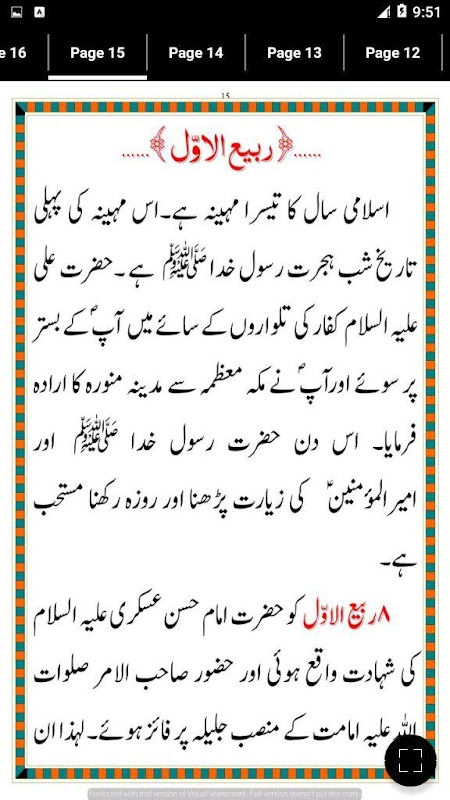 9:51
e 16 Page 15 Page 14 Page 13 Page 12
15
......﴿ربیع الاوّل﴾......
اسلامی سال کا تیسرا مہینہ ہے۔اس مہینہ کی پہلی
تاریخ شب ہجرت رسول خدا ﷺ ہے۔حضرت علی
علیہ السلام کفار کی تلواروں کے سائے میں آپؐ کے بستر
پر سوئے اورآپؐ نے مکہ معظمہ سے مدینہ منورہ کا ارادہ
فرمایا۔ اس دن حضرت رسول خدا ﷺ اور
امیرالمؤمنینؑ کی زیارت پڑھنا اور روزہ رکھنا مستحب
ہے۔
۸ربیع الاوّل کو حضرت امام حسن عسکری علیہ السلام
کی شہادت واقع ہوئی اور حضور صاحب الامر صلوات
اللہ علیہ امامت کے منصب جلیلہ پر فائز ہوئے۔لہذا ان
Protected with trial version of Visual Watermark. Full version doesn't put this mark.